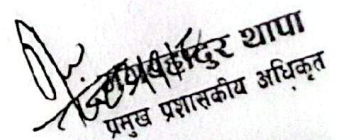 बहादुर थापा
प्रमुख प्रशासकीय अधिकृत